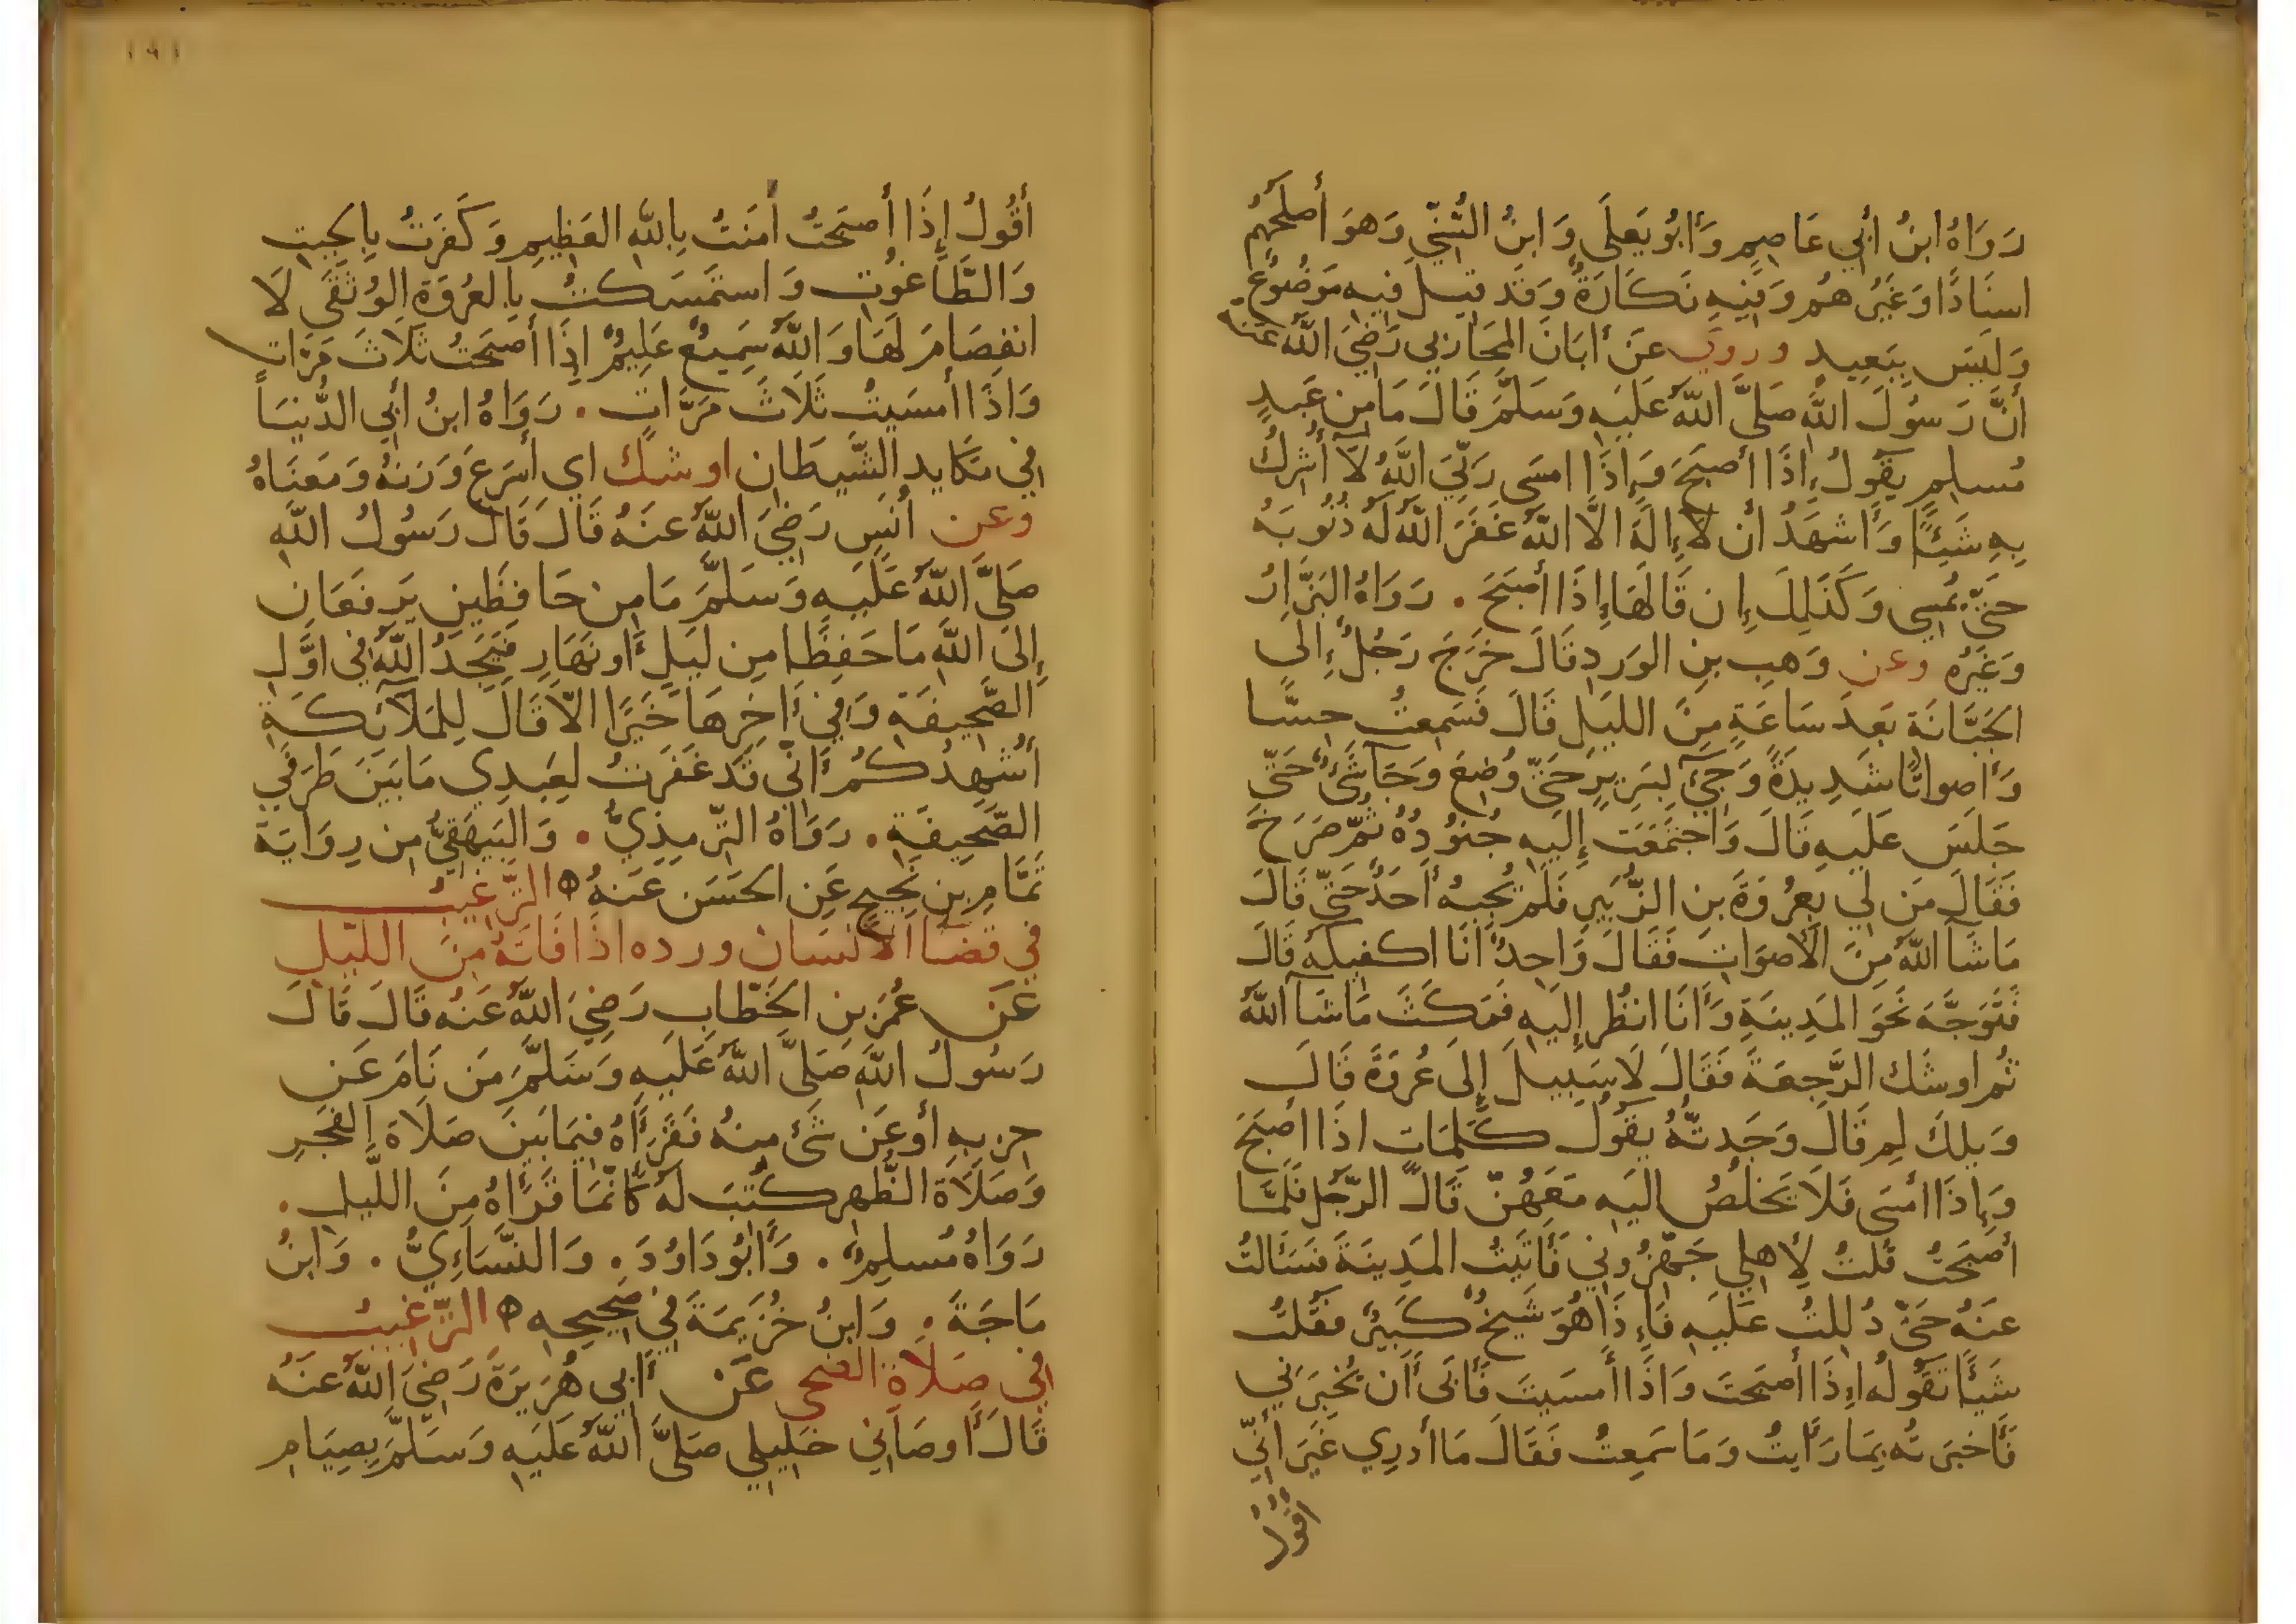 رَوَاهُ ابنُ أَبي عَاصِمٍ وَأَبُو يَعلَى وَابنُ السُّنِّي وَهوَ أَصلَحُهُم
اسنَادًا وَغَيرُهُم وَفِيهِ نَكَارَةٌ وَقَد قِيلَ فِيهِ مَوضُوعٌ
وَلَيسَ بِبَعِيدٍ وروي عَن أَبَانَ المُحَارِبي رَضِيَ اللَّهُ عَنهُ
أَنَّ رَسُولَ اللَّهِ صَلَّى اللَّهُ عَلَيهِ وَسَلَّمَ قَالَ مَا مِن عَبدٍ
مُسلِمٍ يَقُولُ إِذَا أَصبَحَ وَإِذَا امسَى رَبِّيَ اللَّهُ لَا أُشرِكُ
بِهِ شَيئًا وَأَشهَدُ أَن لَا إِلَهَ الَّا اللَّهُ غَفَرَ اللَّهُ لَهُ ذُنُوبَهُ
حَتَّى يُمسِي وَكَذَلِكَ إِن قَالَهَا إِذَا أَصبَحَ . رَوَاهُ البَزَّارُ
وَغَيرُه وعن وَهبِ بنِ الوَردِ قَالَ خَرَجَ رَجُلٌ إِلَى
الجَبَّانَة بَعدَ سَاعَةٍ مِنَ اللَيلِ قَالَ فَسَمِعتُ حِسًّا
وَأَصواتًا شَدِيدَةً وَجِيَ بِسَرِيرٍ حَتَّى وُضِعَ وَجَا شَئٌ حَتَّى
جَلَسَ عَلَيهِ قَالَ وَاجتَمَعَت إِلَيهِ جُنُودُهُ ثُمَّ صَرَخَ
فَقَالَ مَن لِي بِعُروَةَ بنِ الزُّبَيرِ فَلَم يُجِبهُ أَحَدٌ حَتَّى قَالَ
مَا شَا اللَّهُ مِنَ الأَصوَاتِ فَقَالَ وَاحِدٌ أَنَا اكفِيكَهُ قَالَ
فَتَوَجَّهَ نَحوَ المَدِينَةِ وَأَنَا انظُر إِلَيهِ فَمَكَثَ مَا شَا اللَّهُ
ثُم اوشَك الرَّجعَةَ فَقَالَ لَا سَبِيلَ إِلَى عُروَةَ قَالَ
وَيلَكَ لِم قَالَ وَجَدتُهُ يَقُولُ كَلِمَات اذَا أَصبَحَ
وَإِذَا أَمسَى فَلَا يَخلُصُ إِلَيهِ مَعَهُنَّ قَالَ الرَّجُل فَلَمَّا
أَصبَحتُ قُلتُ لِأَهلِي جَهِّزُونِي فَأَتَيتُ المَدِينَةَ فَسَأَلتُ
عَنهُ حَتَّى دُلِلتُ عَلَيهِ فَإِذَا هُوَ شَيخٌ كَبِيرٌ فَقُلتُ
شَيئًا تَقُولُه إِذَا أَصبَحتَ وَاذَا أَمسَيتَ فَأَبَى أَن يُخبِرَنِي
فَأَخبَرتُه بِمَا رَأَيتُ وَمَا سَمِعتُ فَقَالَ مَا أَدرِي غَيرَ أَنِّي
اقُولُ
١٩١
أَقُولُ إِذَا أَصبَحتُ أمَنتُ بِاللَّهِ العَظِيمِ وَكَفَرتُ بِالجِبتِ
وَالطَّاغُوتِ وَاستَمسَكتُ بِالعُروَةِ الوُثقَى لَا
انفِصَامَ لَهَا وَاللَّهُ سَمِيعٌ عَلِيمٌ إِذَا أَصبَحتُ ثَلَاثَ مَرَّاتٍ
وَاذَا أَمسَيتُ ثَلَاثَ مَرَّاتٍ . رَوَاهُ ابنُ أَبي الدُّنيَا
في مَكَايِدِ الشَّيطَان اوشك اي أَسرَعَ وَزنهُ وَمَعنَاهُ
وعن أَنَسٍ رَضِيَ اللَّهُ عَنهُ قَالَ قَالَ رَسُولُ اللَّهِ
صَلَّى اللَّهُ عَلَيهِ وَسَلَّمَ مَا مِن حَافِظَينِ يَرفَعَانِ
إِلَى اللَّهِ مَا حَفِظَا مِن لَيلٍ أَو نَهَارٍ فَيَجِدُ اللَّهُ في اوَّلِ
الصَّحِيفَةِ وَفِي أَخِرِهَا خَيرًا الَّا قَالَ لِلمَلَائكَةِ
أُشهِدُكُم أَنِّي قَد غَفَرتُ لِعَبدِي مَا بَينَ طَرَفَي
الصَّحِيفَةِ . رَوَاهُ التِّرمِذِيُّ . وَالبَيهَقِيُّ مِن رِوَايَة
تَمَّامِ بنِ نَجِيحٍ عَنِ الحَسَن عَنهُ ه التَّرغيبُ
في قضا الانسان ورده اذا فَاتَهُ مِنَ اللَّيلِ
عَن عُمَرَ بنِ الخَطَّابِ رَضِيَ اللَّهُ عَنهُ قَالَ قَالَ
رَسُولُ اللَّهِ صَلَّى اللَّهُ عَلَيهِ وَسَلَّمَ مَن نَامَ عَن
حِزبِهِ أَو عَن شَئ مِنهُ فَقَرَأَهُ فِيمَا بَينَ صَلَاة الفَجرِ
وَصَلَاة الظُّهرِ كُتِبَ لَهُ كَأَنَّمَا قَرَأَهُ مِنَ اللَّيلِ .
رَوَاهُ مُسلِمٌ . وَأَبُو دَاوُدَ . وَالنَّسَاءِيُّ . وَابنُ
مَاجَةَ . وَابنُ خُزَيمَةَ فِي صَحِيحِهِ ه التَّرغيبُ
في صَلَاةِ الضحى عَن أَبي هُرَيرَةَ رَضِيَ اللَّهُ عَنهُ
قَالَ أَوصَانِي خَلِيلِي صَلَّى اللَّهُ عَلَيهِ وَسَلَّمَ بِصِيَامِ